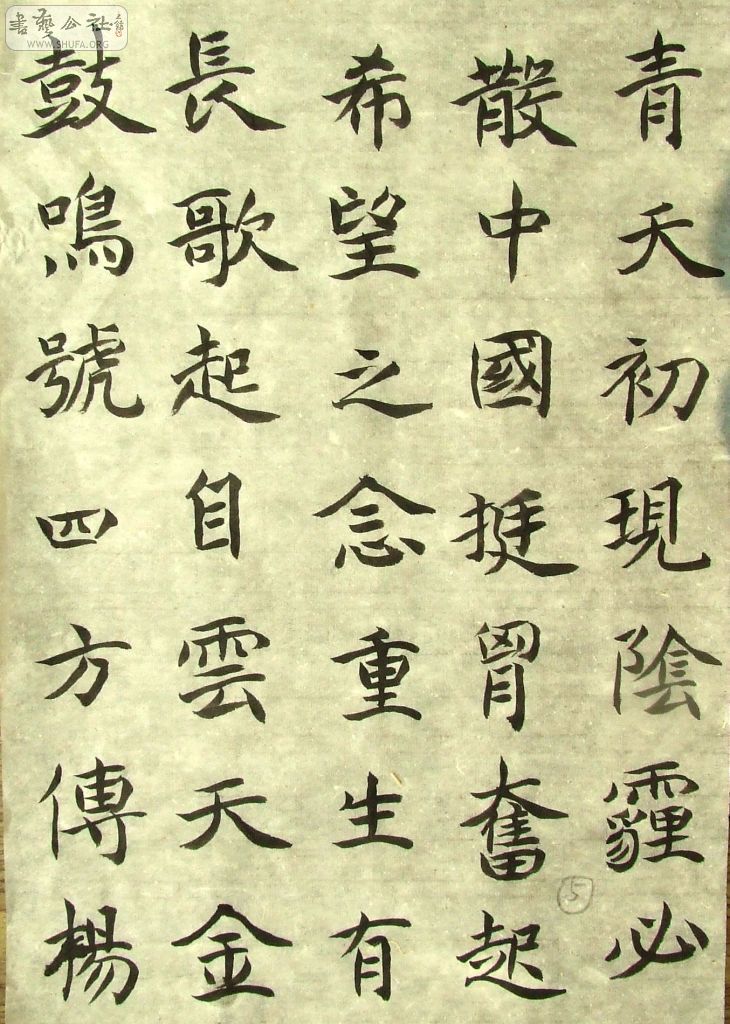 青天初現陰霾必
散中國挺胷奮起
希望之念重生有
長歌起自雲天金
鼓鳴號四方傳楊
書藝公社
WWW.SHUFA.ORG
5